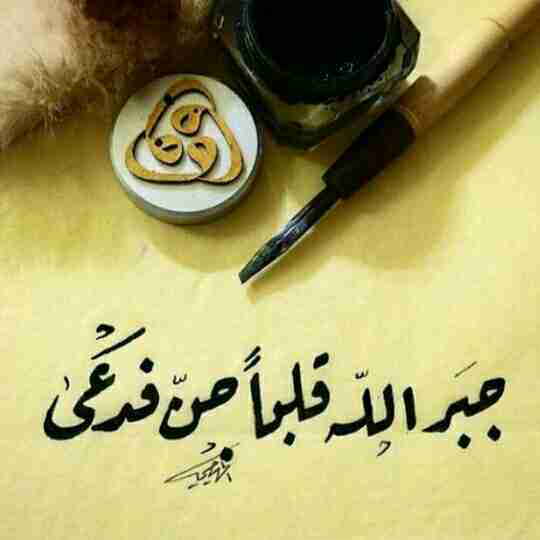 جبَر اللّه قلباً حنّ فدعَى